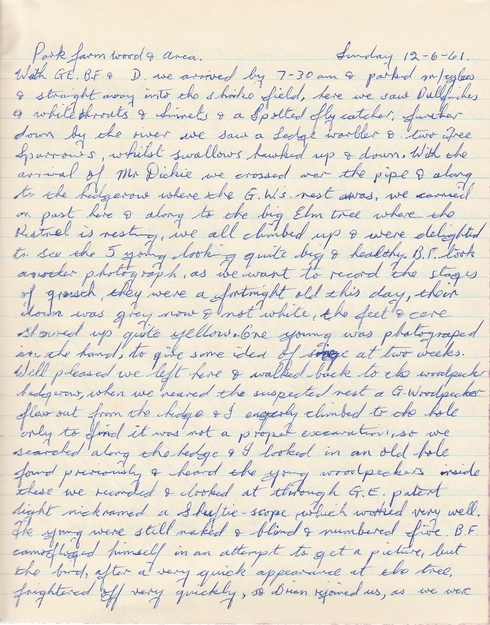 Park farm wood & area. Sunday 12-6-61.
With G.E. B.F. & D. we arrived by 7-30 am & parked m/cycles
& straight away into the shrike field, here we saw Bullfinches
& whitethroats & linnets & a Spotted flycatcher, further
down by the river we saw a Sedge warbler & two Tree
Sparrows, whilst swallows hawked up & down. With the
arrival of Mr Dickie we crossed over the pipe & along
to the hedgerow where the G.W.'s nest was, we carried
on past here & along to the big Elm tree where the
Kestrel is nesting, we all climbed up & were delighted
to see the 5 young looking quite big & healthy. B.F. took
another photograph, as we want to record the stages
of growth, they were a fortnight old this day, their
down was grey now & not white, the feet & cere
showed up quite yellow. One young was photograped
in the hand, to give some idea of at two weeks.
Well pleased we left here & walked back to the woodpecker
hedgerow, when we neared the suspected nest a G. Woodpecker
flew out from the hedge & I eagerly climbed to the hole
only to find it was not a proper excavation, so we
searched along the hedge & I looked in an old hole
found previously & heard the young woodpeckers inside
these we recorded & looked at through G.E. patent
light nicknamed a Shuftie-scope which worked very well.
The young were still naked & blind & numbered five. B.F.
camoflaged himself in an attempt to get a picture, but
the bird, after a very quick appearance at the tree,
frightened off very quickly, so Brian rejoined us, as we were